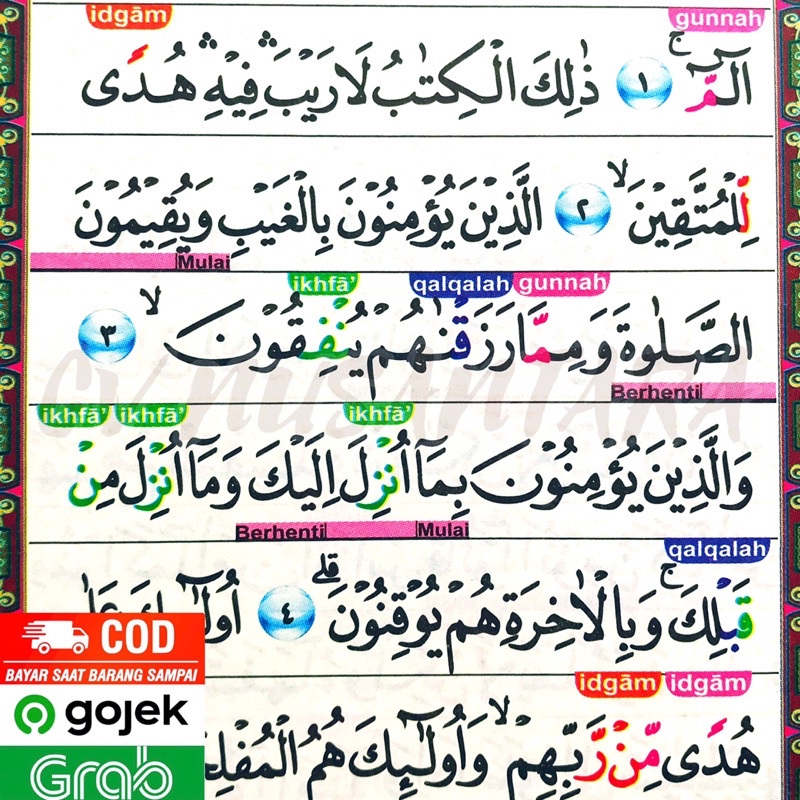 idgām gunnah
الۤمّۤ ۚ ۝١ ذٰلِكَ الْكِتٰبُ لَا رَيْبَ ۛ فِيْهِ ۛ هُدًى
لِّلْمُتَّقِيْنَ ۙ ۝٢ الَّذِيْنَ يُؤْمِنُوْنَ بِالْغَيْبِ وَيُقِيْمُوْنَ
Mulai
ikhfā' qalqalah gunnah
الصَّلٰوةَ وَمِمَّا رَزَقْنٰهُمْ يُنْفِقُوْنَ ۙ ۝٣
Berhenti
ikhfā' ikhfā' ikhfā'
وَالَّذِيْنَ يُؤْمِنُوْنَ بِمَآ اُنْزِلَ اِلَيْكَ وَمَآ اُنْزِلَ مِنْ
Berhenti Mulai
qalqalah
قَبْلِكَ ۚ وَبِالْاٰخِرَةِ هُمْ يُوْقِنُوْنَ ۗ ۝٤
idgām idgām
هُدًى مِّنْ رَّبِّهِمْ ۙ وَاُولٰۤىِٕكَ هُمُ
CV. NUSANTARA
COD
BAYAR SAAT BARANG SAMPAI
gojek
Grab